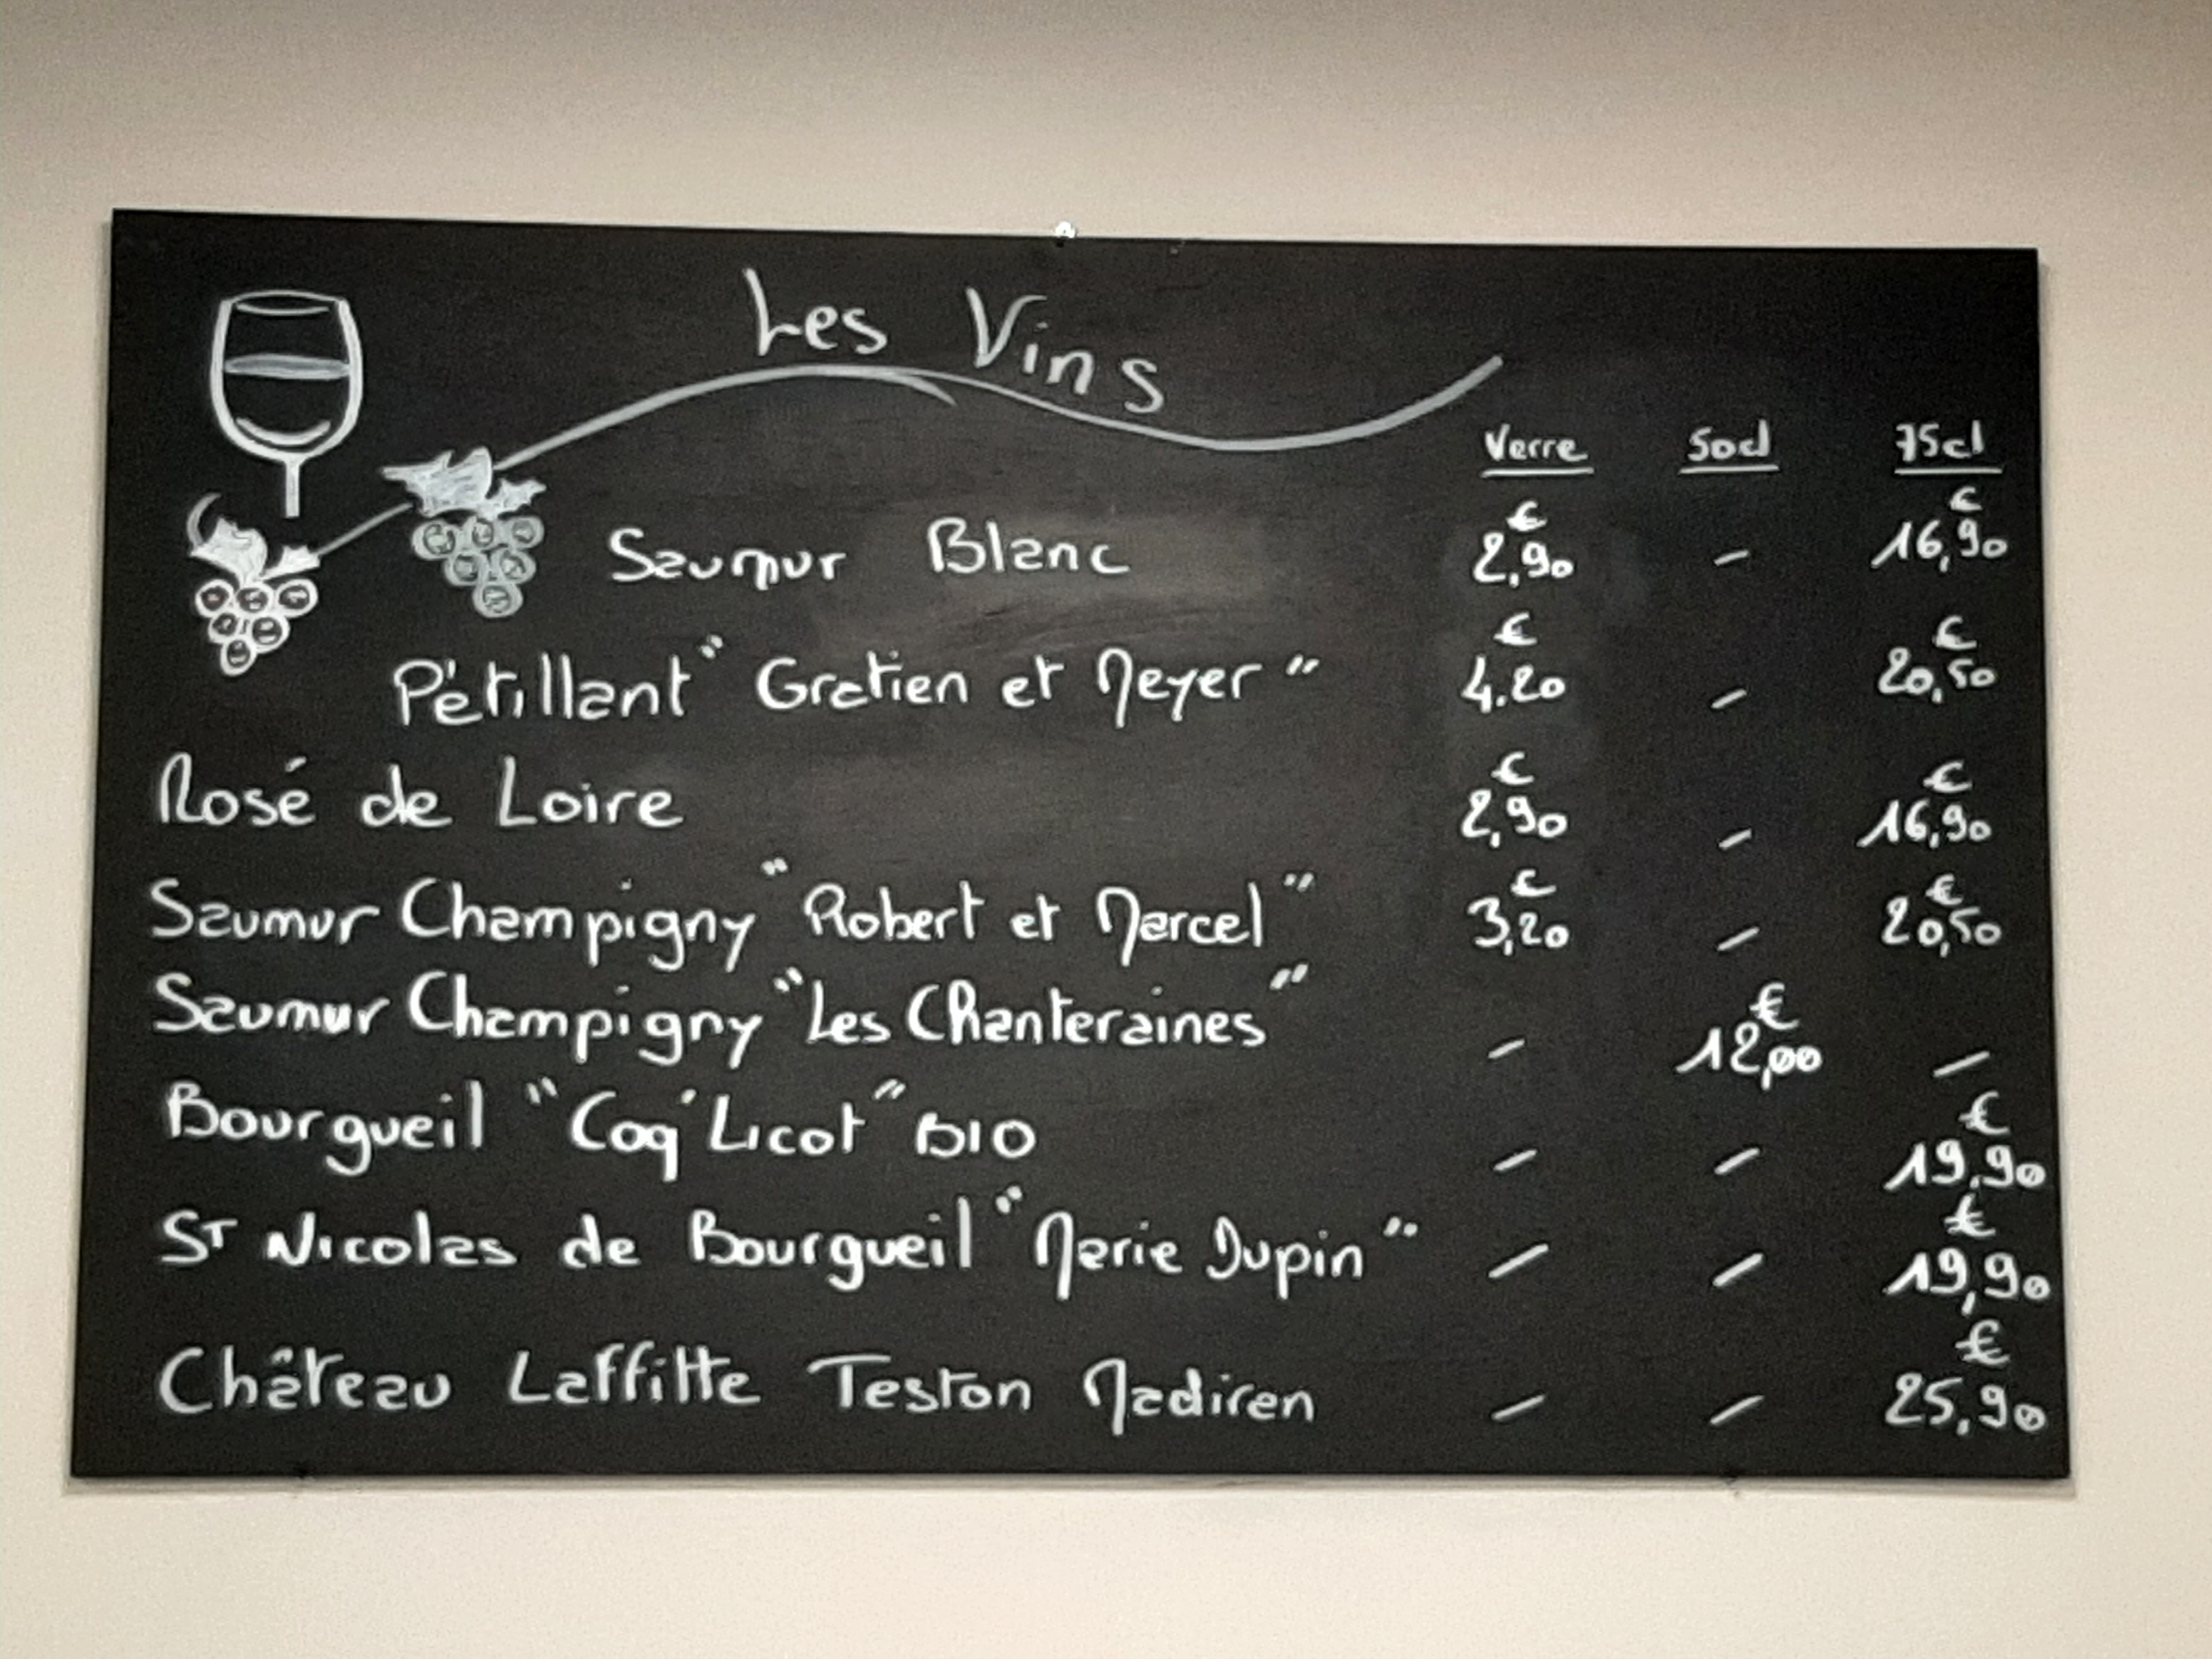 Les Vins
Verre 50cl 75cl
Saumur Blanc 2,90 € - 16,90 €
Pétillant "Gratien et Meyer" 4.20 € - 20,50 €
Rosé de Loire 2,90 € - 16,90 €
Saumur Champigny "Robert et Marcel" 3,20 € - 20,50 €
Saumur Champigny "Les Chanteraines" - 12,00 € -
Bourgueil "Coq'Licot" BIO - - 19,90 €
ST Nicolas de Bourgueil "Marie Dupin" - - 19,90 €
Château Laffitte Teston Madiren - - 25,90 €